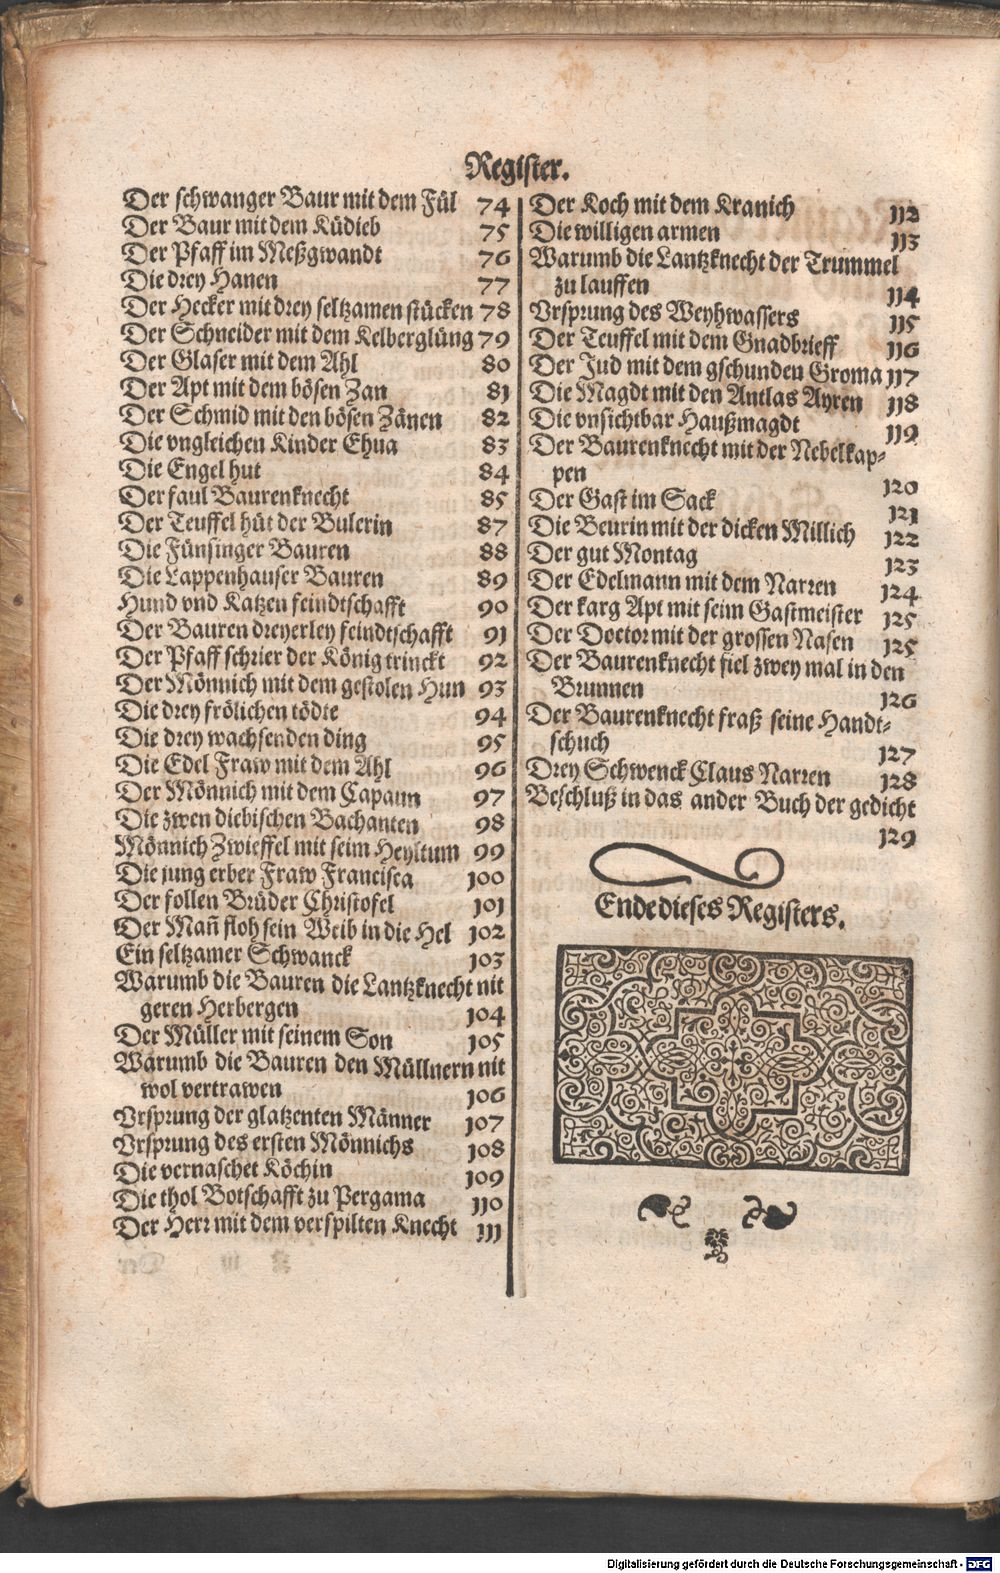 Register.
Der schwanger Baur mit dem Fül 74
Der Baur mit dem Küdieb 75
Der Pfaff im Meßgwandt 76
Die drey Hanen 77
Der Hecker mit drey seltzamen stücken 78
Der Schneider mit dem Kelberglüng 79
Der Glaser mit dem Ahl 80
Der Apt mit dem bösen Zan 81
Der Schmid mit den bösen Zänen 82
Die vngleichen Kinder Ehua 83
Die Engel hut 84
Der faul Baurenknecht 85
Der Teuffel hüt der Bulerin 87
Die Fünsinger Bauren 88
Die Lappenhauser Bauren 89
Hund vnd Katzen feindtschafft 90
Der Bauren dreyerley feindtschafft 91
Der Pfaff schrier der König trinckt 92
Der Mönnich mit dem gestolen Hun 93
Die drey frölichen tödte 94
Die drey wachsenden ding 95
Die Edel Fraw mit dem Ahl 96
Der Mönnich mit dem Capaun 97
Die zwen diebischen Bachanten 98
Mönnich Zwieffel mit seim Heyltum 99
Die jung erber Fraw Francisca 100
Der follen Brüder Christofel 101
Der Mañ floh sein Weib in die Hel 102
Ein seltzamer Schwanck 103
Warumb die Bauren die Lantzknecht nit
geren Herbergen 104
Der Müller mit seinem Son 105
Warumb die Bauren den Müllnern nit
wol vertrawen 106
Vrsprung der glatzenten Männer 107
Vrsprung des ersten Mönnichs 108
Die vernaschet Köchin 109
Die thol Botschafft zu Pergama 110
Der Herr mit dem verspilten Knecht 111
Der Koch mit dem Kranich 112
Die willigen armen 113
Warumb die Lantzknecht der Trummel
zu lauffen 114
Vrsprung des Weyhwassers 115
Der Teuffel mit dem Gnadbrieff 116
Der Jud mit dem gschunden Groma 117
Die Magdt mit den Antlas Ayren 118
Die vnsichtbar Haußmagdt 119
Der Baurenknecht mit der Nebelkap⸗
pen 120
Der Gast im Sack 121
Die Beurin mit der dicken Millich 122
Der gut Montag 123
Der Edelmann mit dem Narren 124
Der karg Apt mit seim Gastmeister 125
Der Doctor mit der grossen Nasen 125
Der Baurenknecht fiel zwey mal in den
Brunnen 126
Der Baurenknecht fraß seine Handt⸗
schuch 127
Drey Schwenck Claus Narren 128
Beschluß in das ander Buch der gedicht
129
Ende dieses Registers.
Digitalisierung gefördert durch die Deutsche Forschungsgemeinschaft - DFG